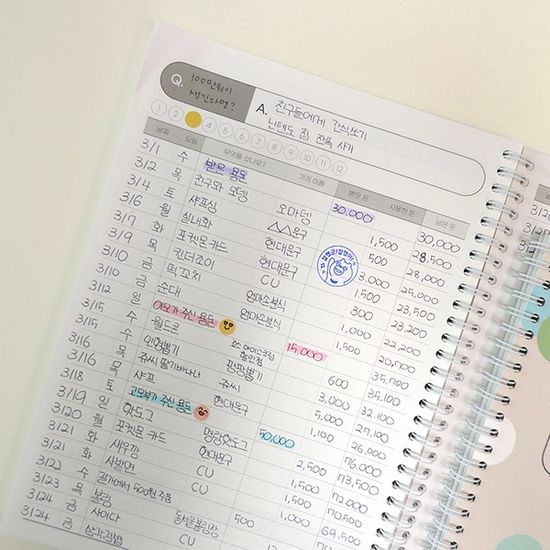 Q. 100만원이 생긴다면?
A. 친구들에게 간식쏘기
닌텐도 칩 잔뜩 사기
1 2 4 5 6 7 8 9 10 11 12
날짜 요일 무엇을 샀나요? 가게 이름 받은 돈 사용한 돈 남은 돈
3/1 수 받은 용돈 30,000 30,000
3/2 목 친구와 오뎅 오마뎅 1,500 28,500
3/4 토 샤프심 △△문구 500 28,000
3/6 월 실내화 현대문구 3,000 25,000
3/7 화 포켓몬 카드 현대문구 1,500 23,500
3/9 목 킨더조이 CU 300 23,200
3/10 금 떡꼬치 엄마손분식 1,000 22,200
3/10 금 순대 엄마손분식 1,500 20,700
3/12 일 이모가 주신 용돈 15,000 35,700
3/15 수 월드콘 600 35,100
3/15 수 인형뽑기 짱짱뽑기 3,000 32,100
3/16 목 쥬씨 딸기바나나 쥬씨 5,000 27,100
3/16 목 샤프 현대문구 1,100 26,000
3/18 토 고모부가 주신 용돈 50,000 76,000
3/19 일 핫도그 명랑핫도그 2,500 73,500
3/20 월 포켓몬 카드 현대문구 1,500 72,000
3/21 화 새우깡 CU 1,500 70,500
3/21 화 사발면 CU 1,000 69,500
3/22 수 길가에서 500원 주움 500
3/24 금 볼링 동서울볼링장
3/24 금 사이다 CU
3/24 금